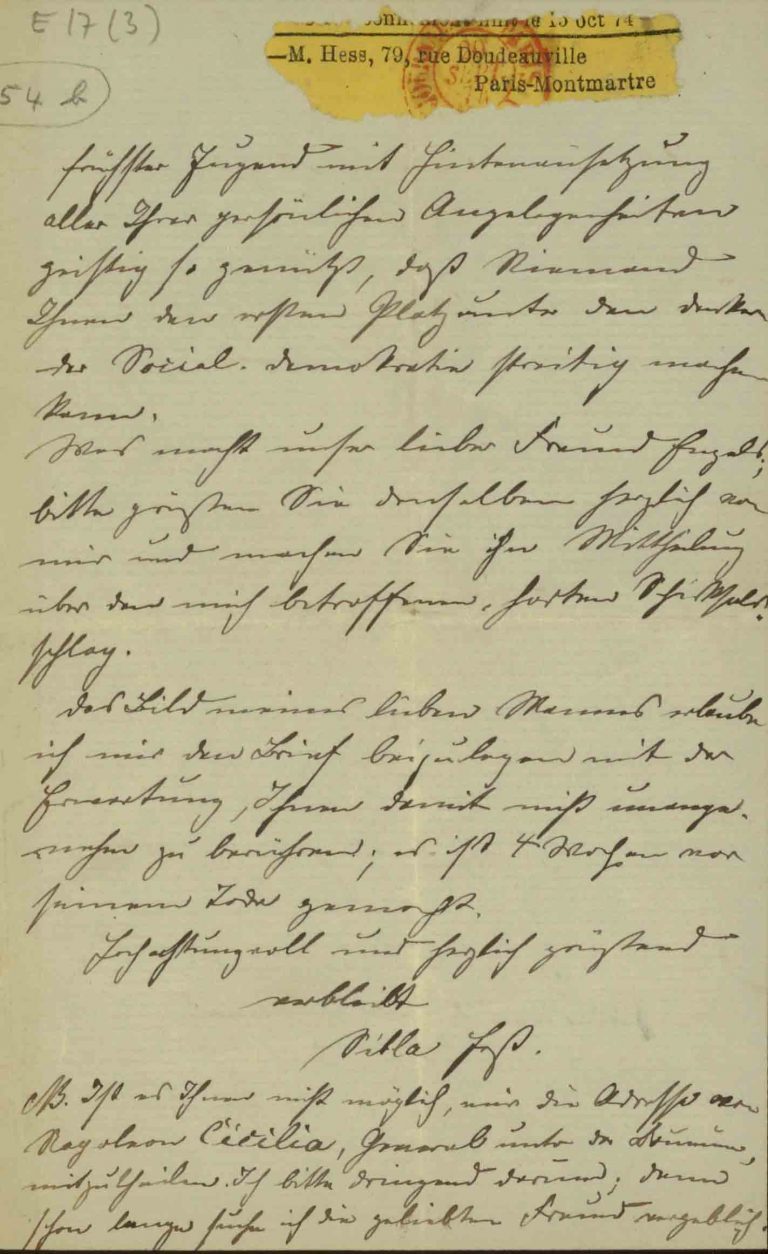 E 17 (3)
54 b
le 15 Oct 74
—M. Hess, 79, rue Doudeauville
Paris-Montmartre
frühster Jugend mit Hintenansetzung
aller Ihrer persönlichen Angelegenheiten
geistig so genützt, daß Niemand
Ihnen den ersten Platz unter den
der Social-demokratie streitig machen
kann.
Was macht unser lieber Freund Engels;
bitte grüßen Sie denselben herzlich von
mir und machen Sie ihn Mittheilung
über den mich betroffenen, harten Schicksals-
schlag.
Das Bild meines lieben Mannes erlaube
ich mir den Brief beizulegen mit der
Erwartung, Ihnen damit nicht unange-
nehm zu berühren; es ist 4 Wochen vor
seinem Tode gemacht.
Hochachtungsvoll und herzlich grüßend
verbleibt
Sibla Heß.
NB. Ist es Ihnen nicht möglich, mir die Adresse von
Napoleon Cécilia, General unter der Comune,
mitzutheilen. Ich bitte dringend darum; denn
schon lange suche ich die geliebten Freund vergeblich.